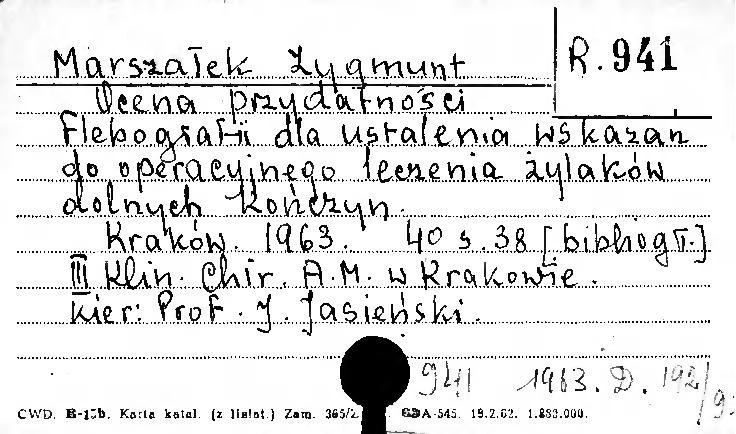 Marszałek Zygmunt
R. 941
Ocena przydatności
flebografii dla ustalenia wskazań
do operacyjnego leczenia żylaków
dolnych kończyn.
Kraków. 1963. 40 s. 38 [bibliogr.]
III Klin. Chir. A.M. w Krakowie.
Kier: Prof. J. Jasieński.
941 1963. D. 192/9
CWD. B-15b. Karta katal. (z liniat.) Zam. 365/2 A-545. 19.2.62. 1.833.000.